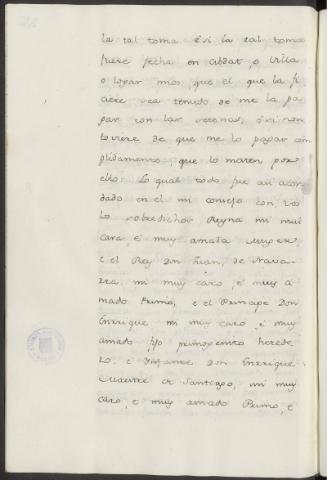 la tal toma. È si la tal toma
fuere fecha en cibdat, o villa
o logar mio, que el que la fi
ciere sea tenido de me la pa
gar con las setenas, è si non
toviere de que me lo pagar con
plidamente, que lo maten por
ello. Lo qual todo fue asi acor
dado en el mi consejo con vos
los sobredichos Reyna mi mui
cara, è muy amada muger,
è el Rey Don Juan, de Nava
rra, mi muy caro, è muy a
mado Primo, è el Principe Don
Enrrique mi muy caro, è muy
amado fijo primogenito herede
ro, è Infante don Enrrique
Maestre de Santiago, mi muy
caro, è muy amado Primo, è